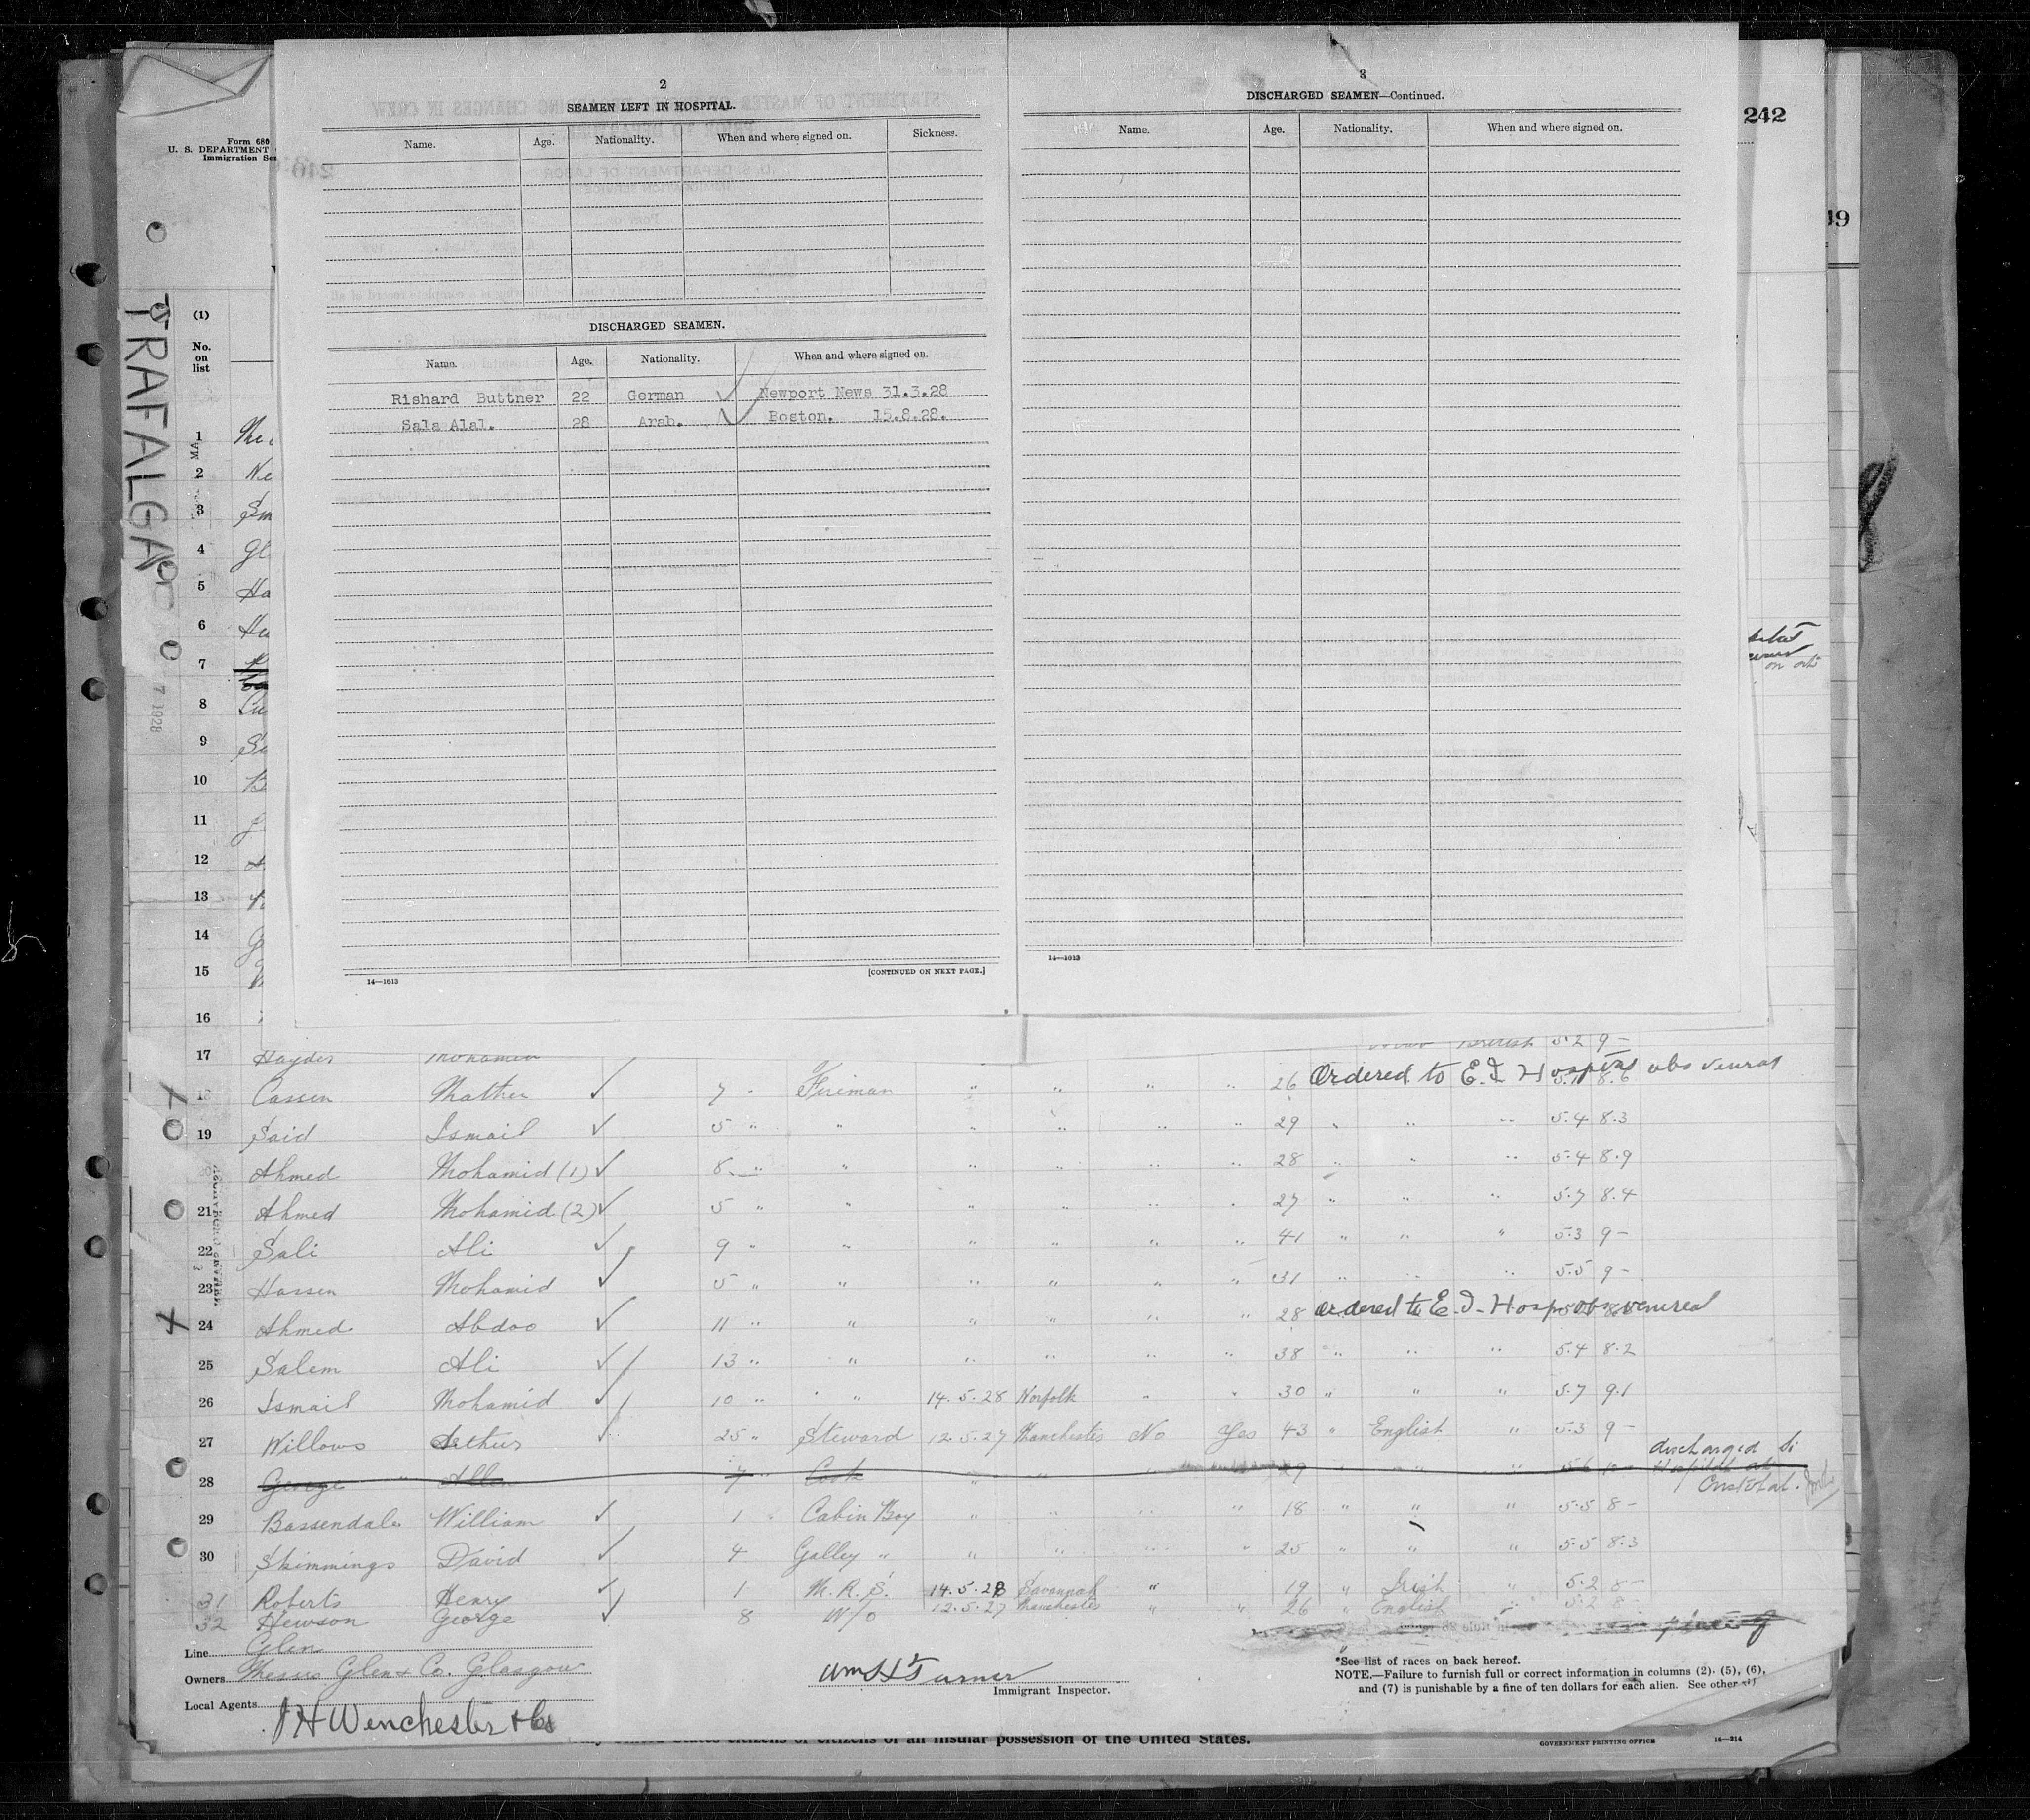 2
SEAMEN LEFT IN HOSPITAL.
Name. Age. Nationality. When and where signed on. Sickness.
DISCHARGED SEAMEN.
Name. Age. Nationality. When and where signed on.
Rishard Buttner 22 German Newport News 31.3.28
Sala Alal. 28 Arab. Boston. 15.8.28.
14—1013
[CONTINUED ON NEXT PAGE.]
3
DISCHARGED SEAMEN—Continued.
Name. Age. Nationality. When and where signed on.
14—1013
242
Form 680
U. S. DEPARTMENT
Immigration Ser
TRAFALGAR
7 1928
(1)
No.
on
list
1
2 Ne
3 Sm
4 Gl
5 Ha
6 Hu
7
8 Cu
9
10 B
11
12
13
14 G
15
16
17 Hayder Mohamid British 5.2 9 -
18 Cassen Mather ✓ 7 - Fireman " " " " 26 Ordered to E.I. Hospital obs venreal 8.6
19 Said Ismail ✓ 5 " " " " " " 29 " " " 5.4 8.3
20 Ahmed Mohamid (1) ✓ 8 " " " " " " 28 " " " 5.4 8.9
21 Ahmed Mohamid (2) ✓ 5 " " " " " " 27 " " " 5.7 8.4
22 Sali Ali ✓ 9 " " " " " " 41 " " " 5.3 9 -
23 Hassen Mohamid ✓ 5 " " " " " " 31 " " " 5.5 9 -
24 Ahmed Abdoo ✓ 11 " " " " " " 28 Ordered to E.I. Hosp obs venereal
25 Salem Ali ✓ 13 " " " " " " 38 " " " 5.4 8.2
26 Ismail Mohamid ✓ 10 " " 14.5.28 Norfolk " " 30 " " " 5.7 9.1
27 Willows Arthur ✓ 25 " Steward 12.5.27 Manchester No Yes 43 " English " 5.3 9 -
28 George Allen 7 " Cook " " " 29 " " " 5.6 discharged to Hospital at Cristobal.
29 Bassendale William ✓ 1 " Cabin Boy " " " " 18 " " " 5.5 8 -
30 Skimmings David ✓ 4 Galley " " " " " 25 " " " 5.5 8.3
31 Roberts Henry ✓ 1 M. R. S. 14.5.28 Savannah " 19 " Irish " 5.2 8 -
32 Hewson George ✓ 8 W/o 12.5.27 Manchester " " 26 " English " 5.2 8 -
Line Glen
Owners Messrs Glen & Co. Glasgow
Local Agents J H Winchester & Co
Wm H Turner
Immigrant Inspector.
*See list of races on back hereof.
NOTE.—Failure to furnish full or correct information in columns (2), (5), (6),
and (7) is punishable by a fine of ten dollars for each alien. See other
United States citizens or citizens of an insular possession of the United States.
GOVERNMENT PRINTING OFFICE
14—214